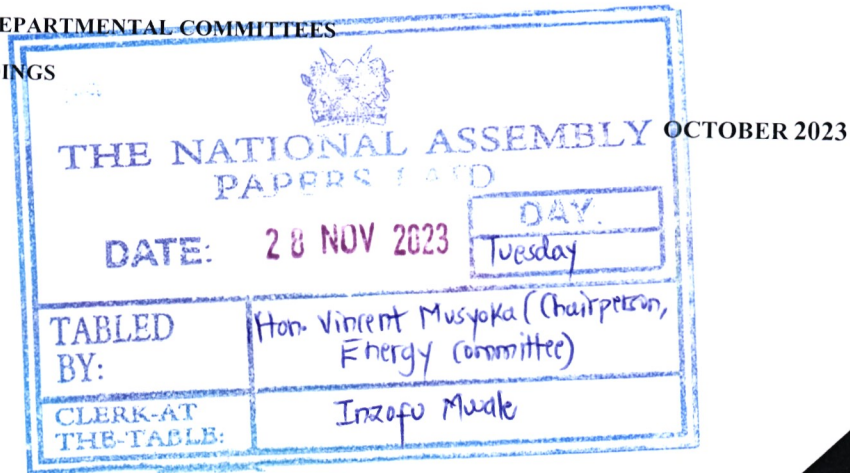 EPARTMENTAL COMMITTEES
INGS
OCTOBER 2023
THE NATIONAL ASSEMBLY
PAPERS LAID
DATE: 28 NOV 2023
DAY.
Tuesday
TABLED BY:
Hon. Vincent Musyoka (Chairperson,
Energy Committee)
CLERK-AT THE-TABLE:
Inzofu Mwale